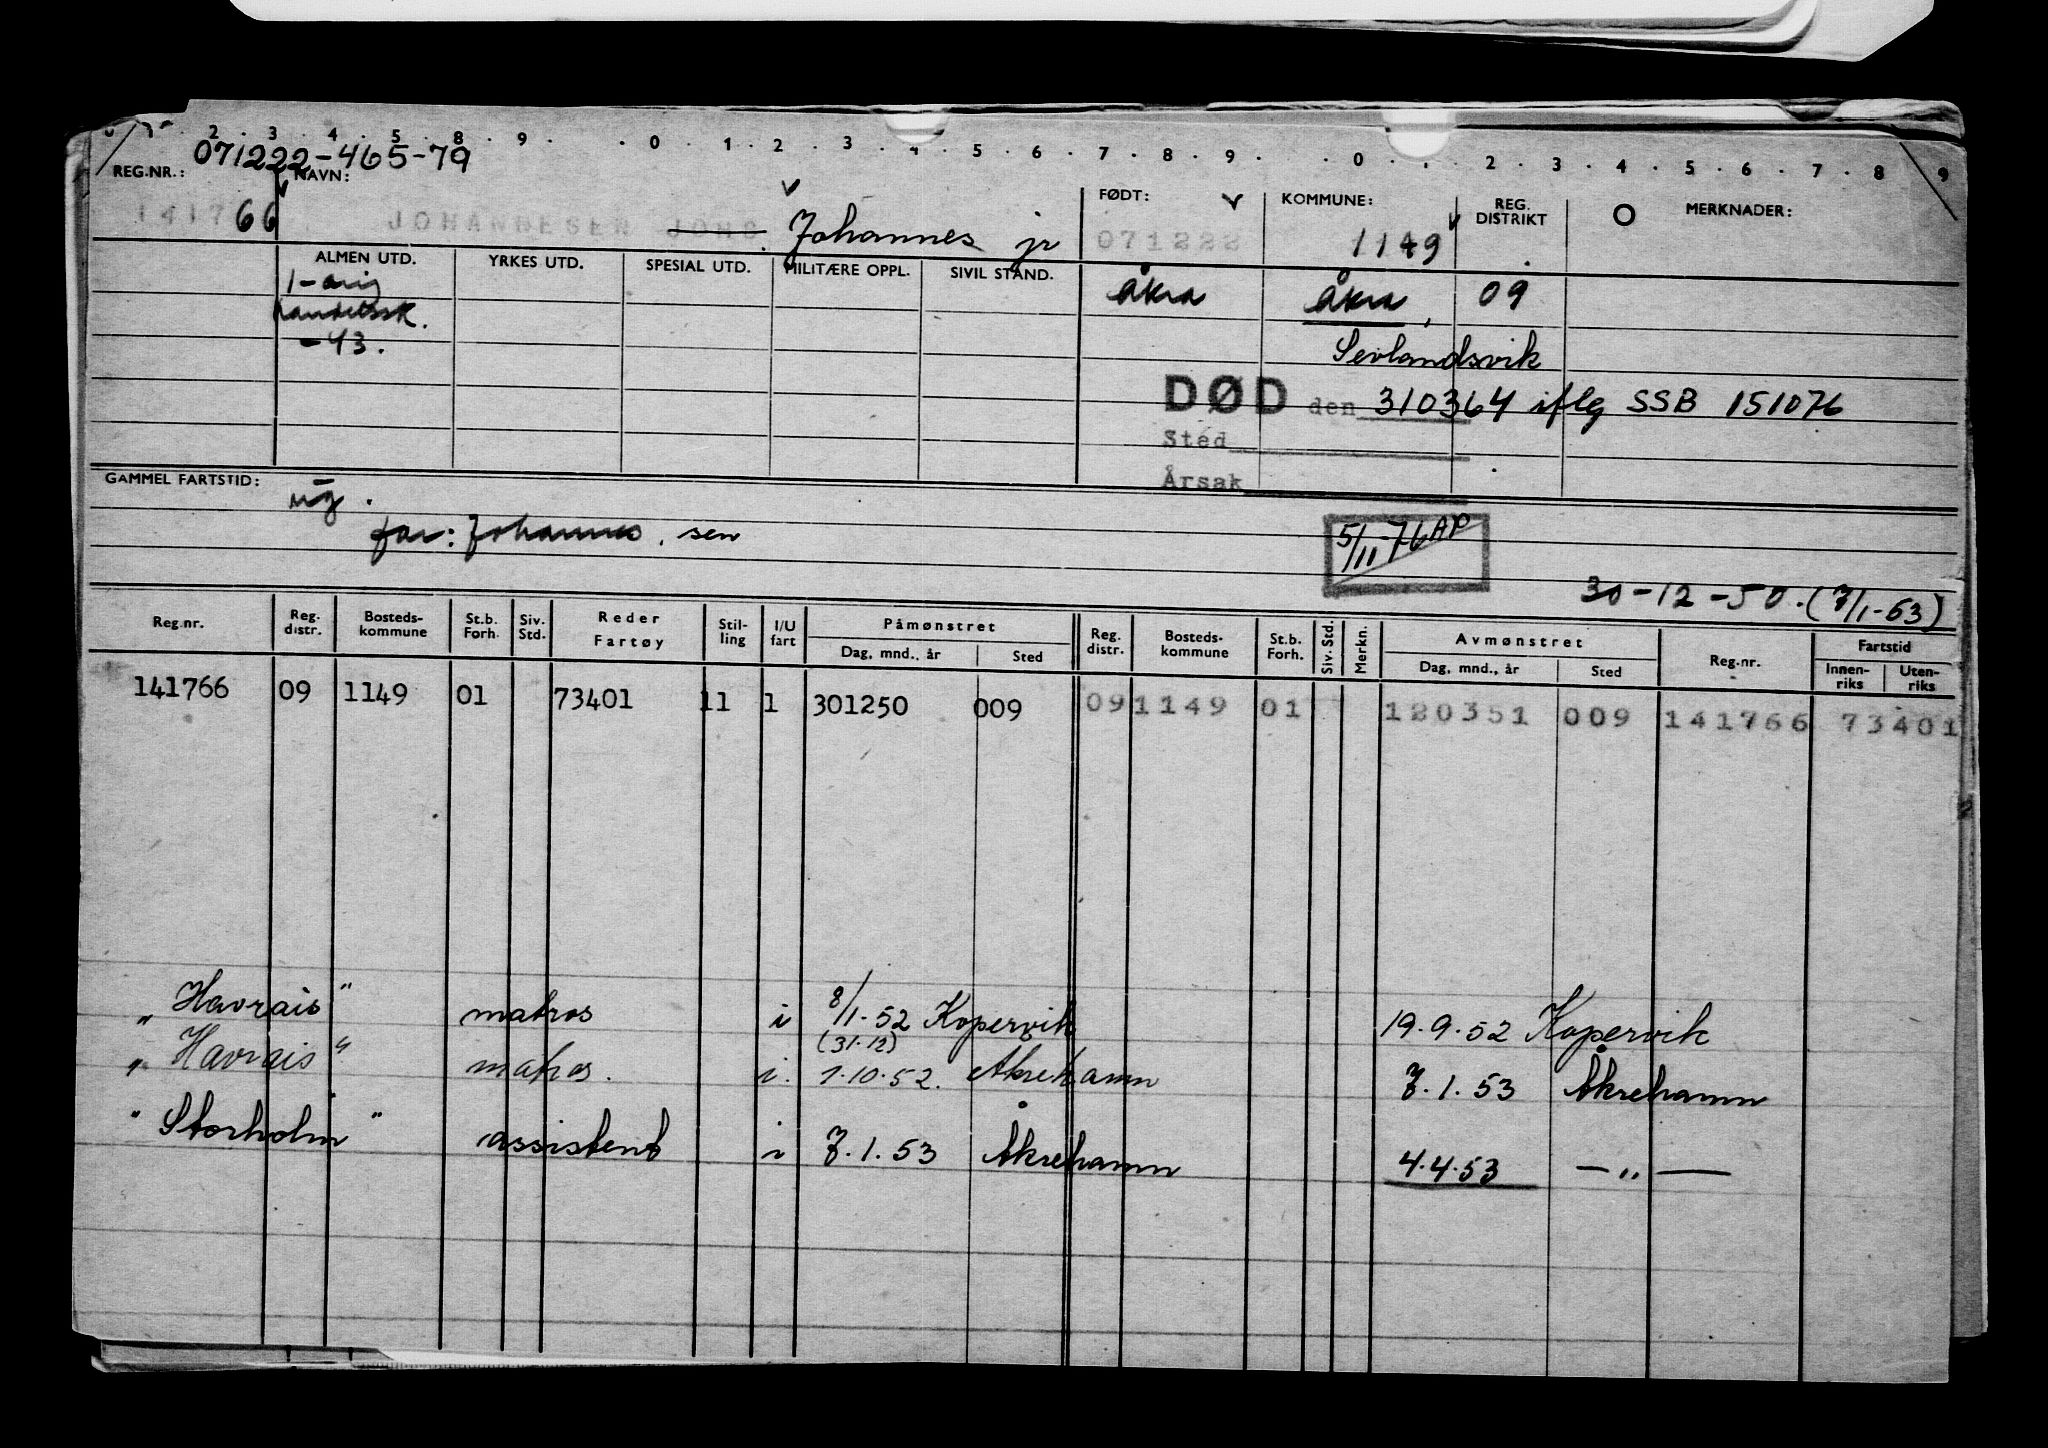 2 . 3 . 4 . 5 . 8 . 9 . . 0 . 1 . 2 . 3 . 4 . 5 . 6 . 7 . 8 . 9 . . 0 . . 2 . 3 . 4 . 5 . 6 . 7 . 8 . 9
071222-465-79
REG.NR.: NAVN: FØDT: KOMMUNE: REG. DISTRIKT MERKNADER:
141766 JOHANNESEN JOHS. Johannes jr 071222 1149
ALMEN UTD. YRKES UTD. SPESIAL UTD. MILITÆRE OPPL. SIVIL STAND.
1-årig Åkra Åkra, 09
handelssk.
-43. Sevlandsvik
DØD den 310364 iflg SSB 151076
Sted
Årsak
GAMMEL FARTSTID:
far: Johannes, sen
5/11-76 AP
30-12-50. (7/1-53)
Reg.nr. Reg. distr. Bosteds-kommune St.b. Forh. Siv. Std. Reder Fartøy Stil-ling I/U fart Påmønstret Reg. distr. Bosteds-kommune St.b. Forh. Siv. Std. Merkn. Avmønstret Reg.nr. Fartstid
Dag, mnd., år Sted Dag, mnd., år Sted Innen-riks Uten-riks
141766 09 1149 01 73401 11 1 301250 009 09 1149 01 120351 009 141766 73401
"Havrais" matros i 8/1-52 Kopervik 19.9.52 Kopervik
(31.12)
"Havrais" matros. i. 1.10.52. Åkrehamn 7.1.53 Åkrehamn
"Storholm" assistent i 7.1.53 Åkrehamn 4.4.53 — " —